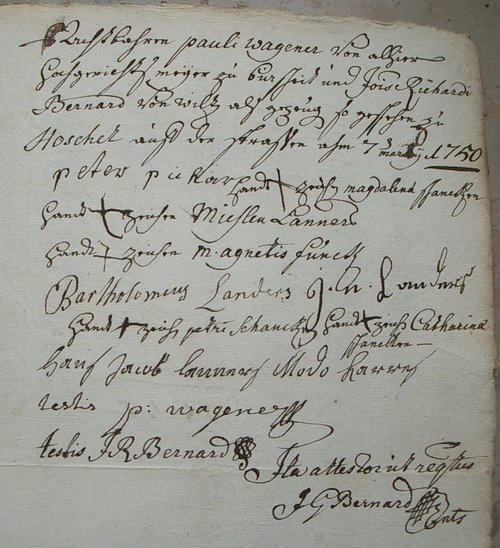 Achtbahren pauli wagener von alhier
hochgerichts meyer zu burscheit und Jois Richardi
Bernard von wiltz als gezeug so geschehen zu
Hoschet auff der strassen ahm 7 martij 1750
peter pickar handt + zeichen magdalena schancken
handt + zeichen Michlen Lanners
handt + zeichen magnetis funck
Bartholomeus Landers J. n. Landers
handt + zeichen petri schancken handt + zeichen Catharina
schancken
hans Jacob lanners Modo Karres
testis p: wagener
testis J R Bernard
Ita attestor ut reqstus
J G Bernard